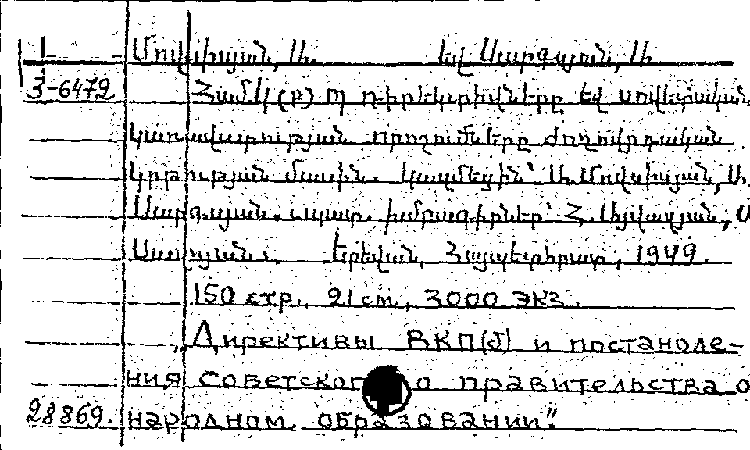 1 Մովսիսյան, Ս. եվ Սարգսյան, Ս
3-6472 ՀամԿ(բ)Պ դիրեկտիվները եվ սովետական
կառավարության որոշումները ժողովրդական
կրթության մասին. Կազմեցին՝ Ս. Մովսիսյան, Ս.
Սարգսյան. պատ. խմբագիրներ՝ Հ. Այվազյան,
Երեվան, Հայպետհրատ, 1949.
150 стр., 21 см., 3000 экз.
„Директивы ВКП(б) и постановле-
ния Советского правительства о
28869. народном образовании".